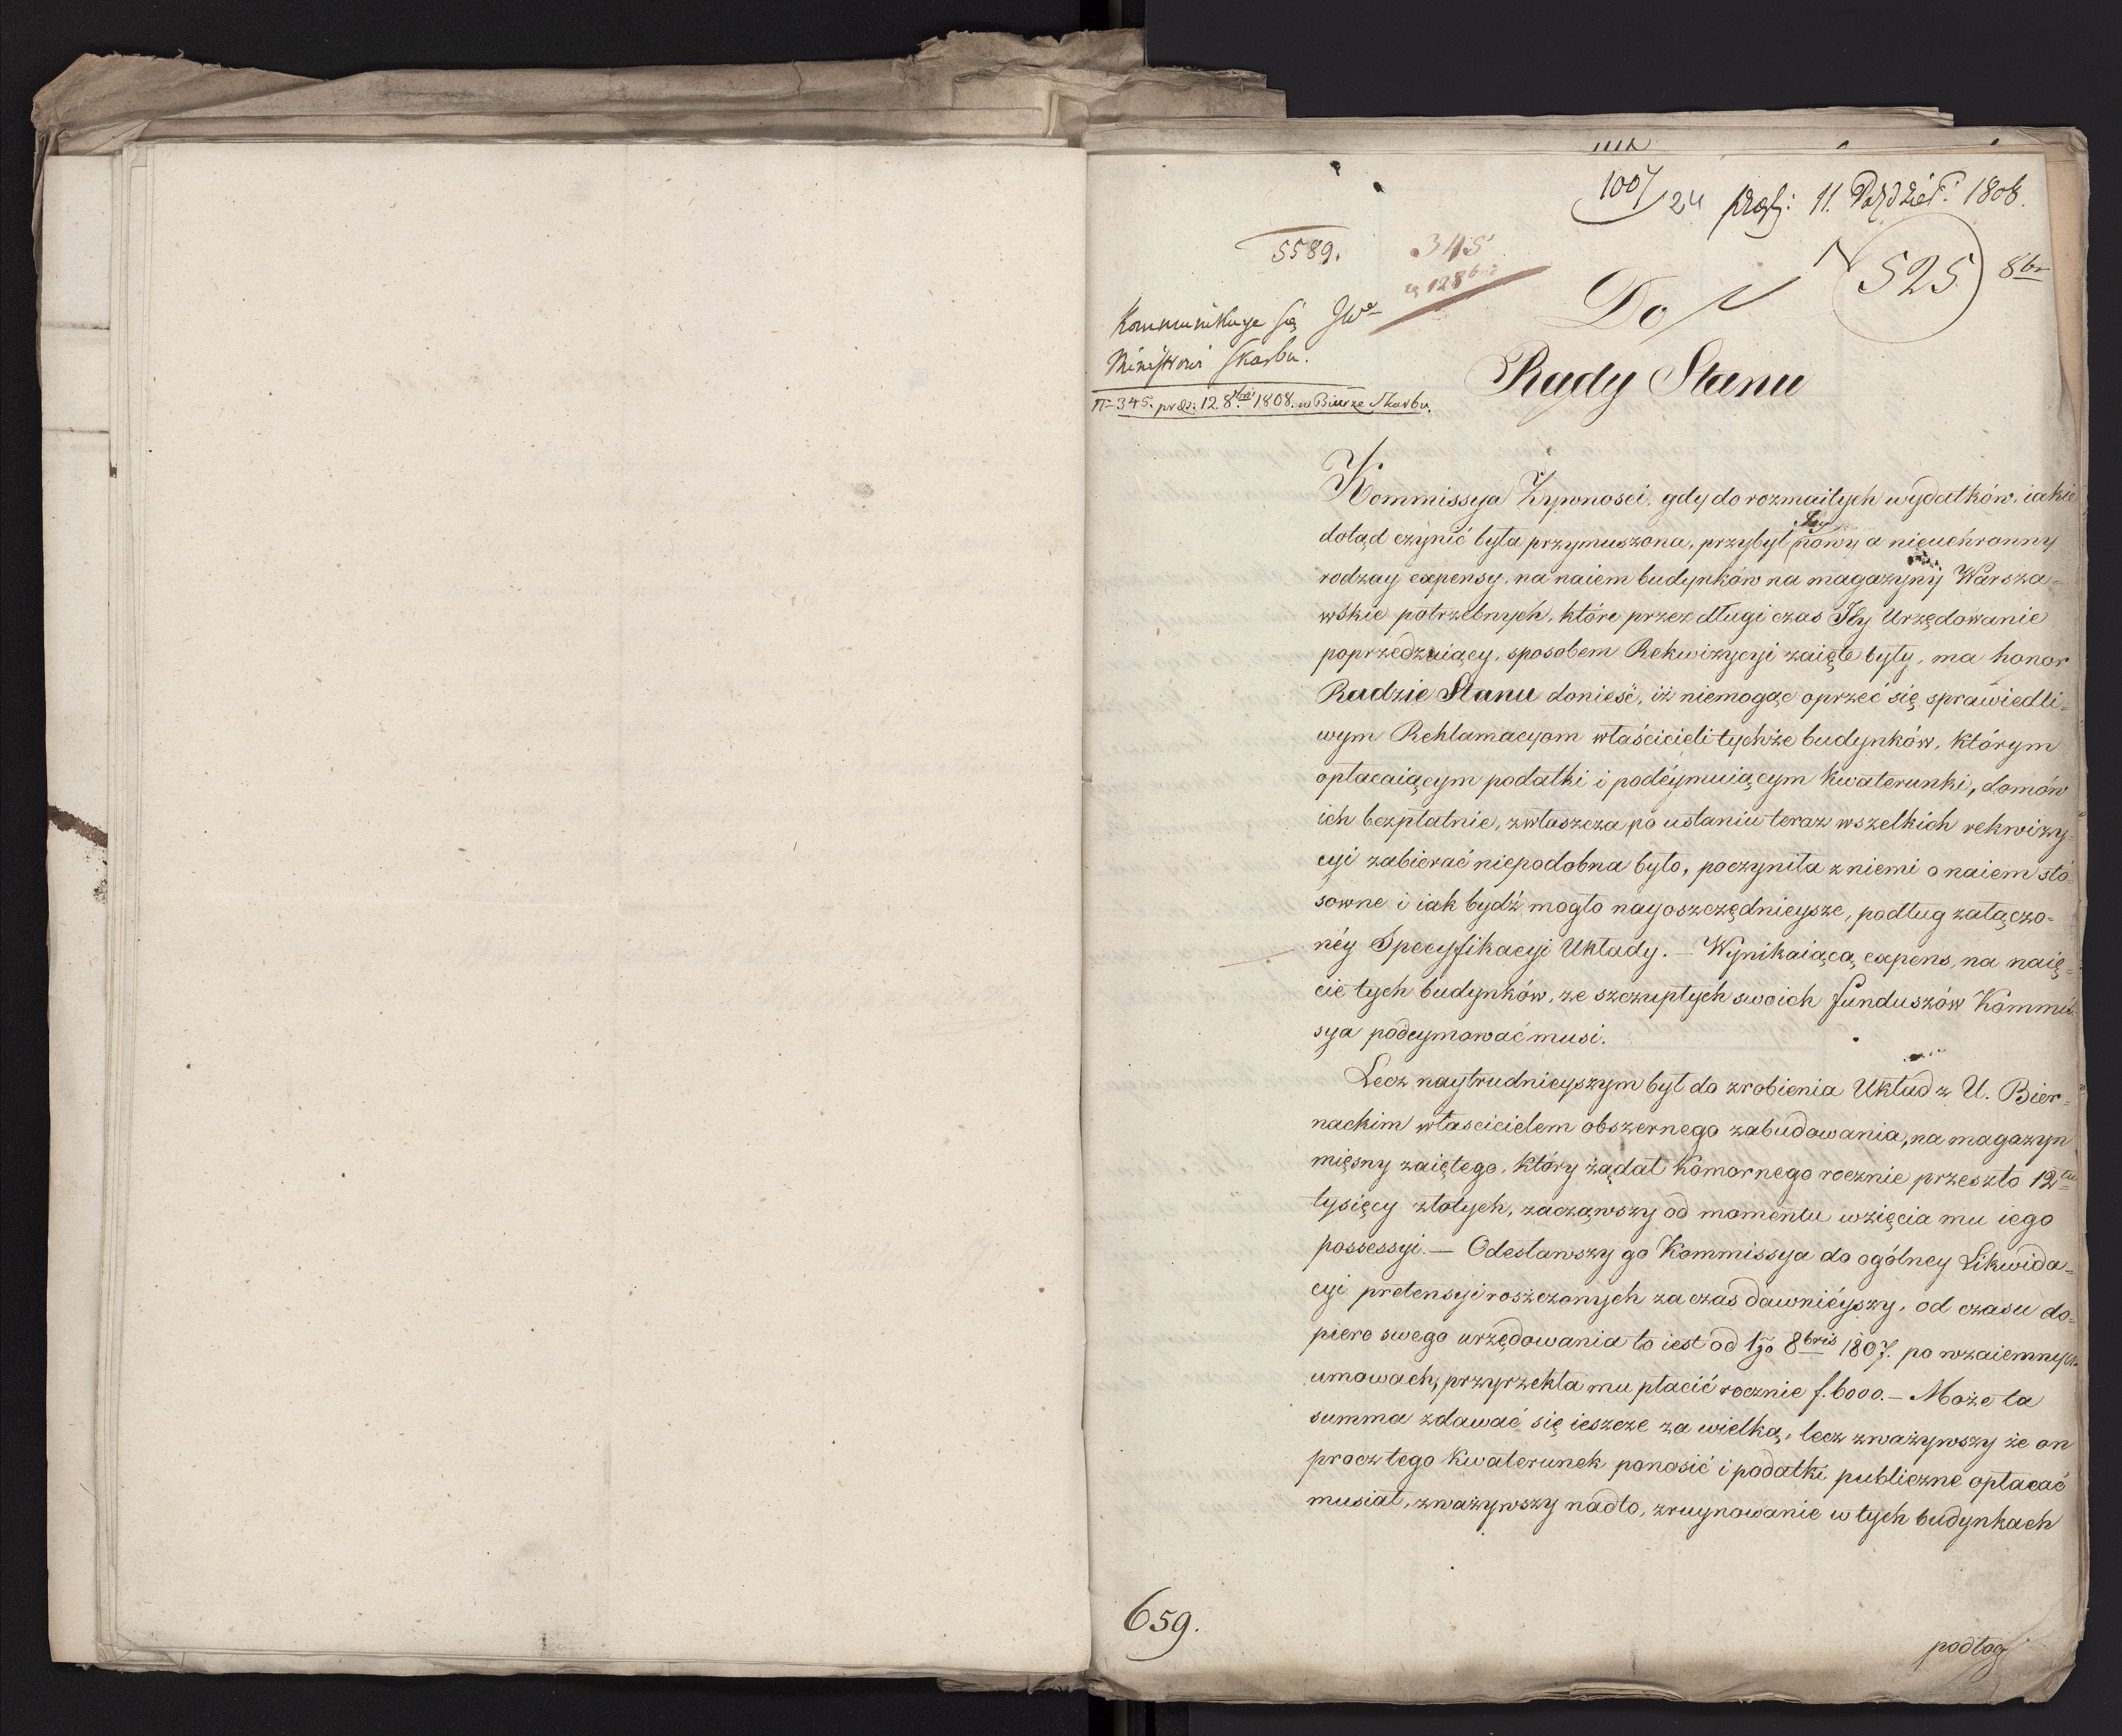 1007/24 præs: 11. Paździer: 1808.
5589.
345
12 8bris
N 525 8br
Kommunikuye się JWe
Ministrowi Skarbu.
n= 345. præs: 12. 8bris 1808. w Biurze Skarbu.
Do
Rady Stanu
Kommissya Żywnosci, gdy do rozmaitych wydatków, iakie
dotąd czynić była przymuszona, przybył Jey nowy a nieuchronny
rodzay expensy, na naiem budynków na magazyny Warsza-
wskie potrzebnych, które przez długi czas Jey Urzędowanie
poprzedzaiący, sposobem Rekwizycyi zaięte były, ma honor
Radzie Stanu donieść, iż niemogąc oprzeć się sprawiedli-
wym Reklamacyom właścicieli tychże budynków, którym
opłacaiącym podatki i podéymuiącym kwaterunki, domów
ich bezpłatnie, zwłaszcza po ustaniu teraz wszelkich rekwizy-
cyi zabierać niepodobna było, poczyniła z niemi o naiem sto-
sowne i iak bydź mogło nayoszczędnieysze, podług załączo-
néy Specyfikacyi Układy. — Wynikaiącą expens, na naię-
cie tych budynków, ze szczupłych swoich funduszów Kommis-
sya podeymować musi.
Lecz naytrudnieyszym był do zrobienia Układ z U. Bier-
nackim włascicielem obszernego zabudowania, na magazyn
mięsny zaiętego, który żądał Komornego rocznie przeszło 12tu
tysięcy złotych, zacząwszy od momentu wzięcia mu iego
possessyi. — Odesławszy go Kommissya do ogólney Likwida-
cyi pretensyi roszczonych za czas dawniéyszy, od czasu do-
piero swego urzędowania to iest od 1go 8bris 1807. po wzaiemnych
umowach, przyrzekła mu płacić rocznie f. 6000. — Może ta
summa zdawać się ieszcze za wielką, lecz zważywszy że on
procz tego Kwaterunek ponosić i podatki publiczne opłacać
musiał, zważywszy nadto, zruynowanie w tych budynkach
659.
podłog